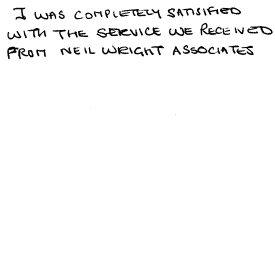 I WAS COMPLETELY SATISIFIED
WITH THE SERVICE WE RECEIVED
FROM NEIL WRIGHT ASSOCIATES